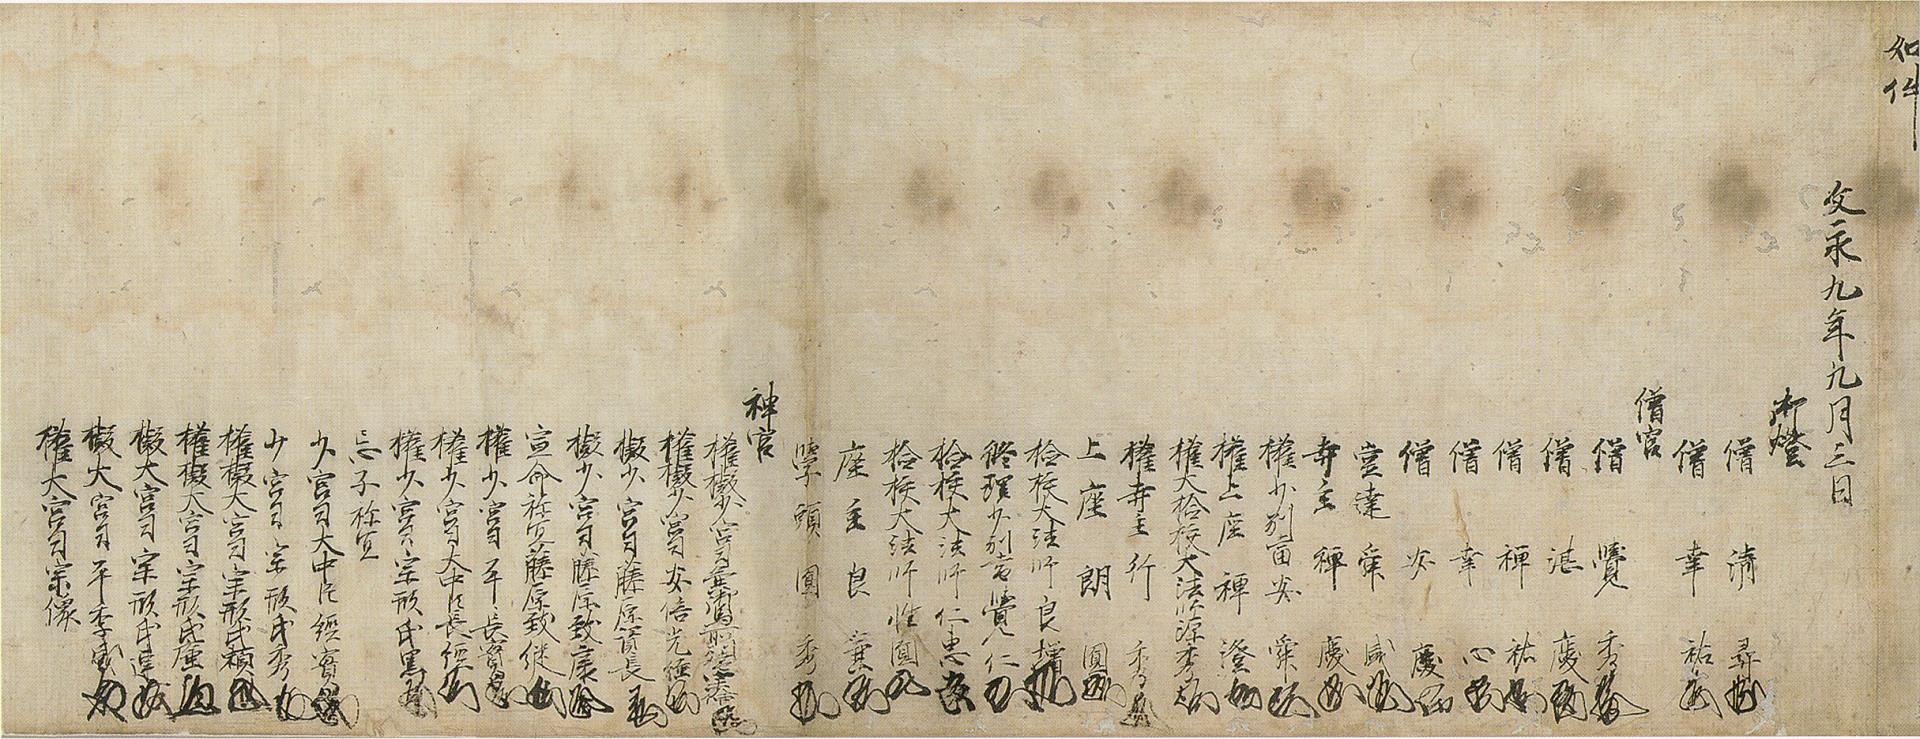 如件
文永九年九月三日
御燈
僧 清 尋
僧 幸 祐
僧官
僧 覺 秀
僧 湛 慶
僧 禅 祐
僧 幸 心
僧 安 慶
堂達 舜 咸
寺主 禅 慶
權少別當 安 舜
權上座 禅 澄
權大檢校大法師源秀
權寺主 行 秀
上座 朗 圓
檢校大法師良
修理少別當覺仁
檢校大法師仁恵
檢校大法師性圓
座主 良 兼
學頭 圓 秀
神官
權擬少宮司
權擬少宮司安倍光
擬少宮司藤原資長
擬少宮司藤原致康
宣命祢宜藤原致継
權少宮司平長資
權少宮司大中臣長経
權少宮司宗形氏
忌子祢宜
少宮司大中臣経實
少宮司宗形氏秀
權擬大宮司宗形氏頼
權擬大宮司宗形氏
擬大宮司宗形氏
擬大宮司平季
權大宮司宗像